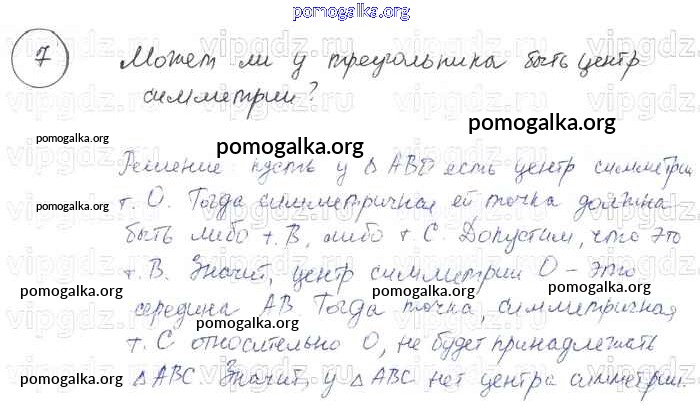 pomogalka.org
7 Может ли у треугольника быть центр
симметрии?
pomogalka.org
pomogalka.org
Решение: пусть у △ АВС есть центр симметрии
pomogalka.org
т. О. Тогда симметричная ей точка должна
быть либо т. В, либо т С. Допустим, что это
pomogalka.org
т. В. Значит, центр симметрии О – это
pomogalka.org
pomogalka.org
середина АВ. Тогда точка, симметричная
pomogalka.org
pomogalka.org
т. С относительно О, не будет принадлежать
△ АВС. Значит, у △ АВС нет центра симметрии.
pomogalka.org
pomogalka.org